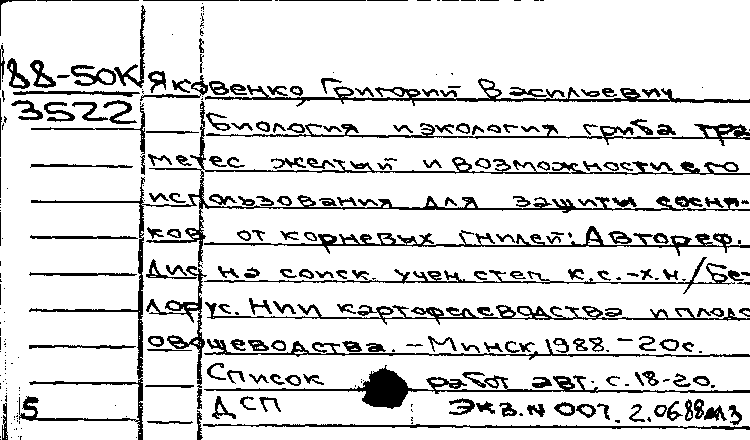 88-50К
3522
Яковенко, Григорий Васильевич
Биология и экология гриба тра
метес желтый и возможности его
использования для защиты сосня-
ков от корневых гнилей: Автореф.
дис. на соиск. учен. степ. к.с.-х.н./Бе-
лорус. НИИ картофелеводства и плодо
овощеводства. – Минск, 1988. – 20с.
Список работ авт.: с. 18-20.
5 ДСП Экз. N 007.